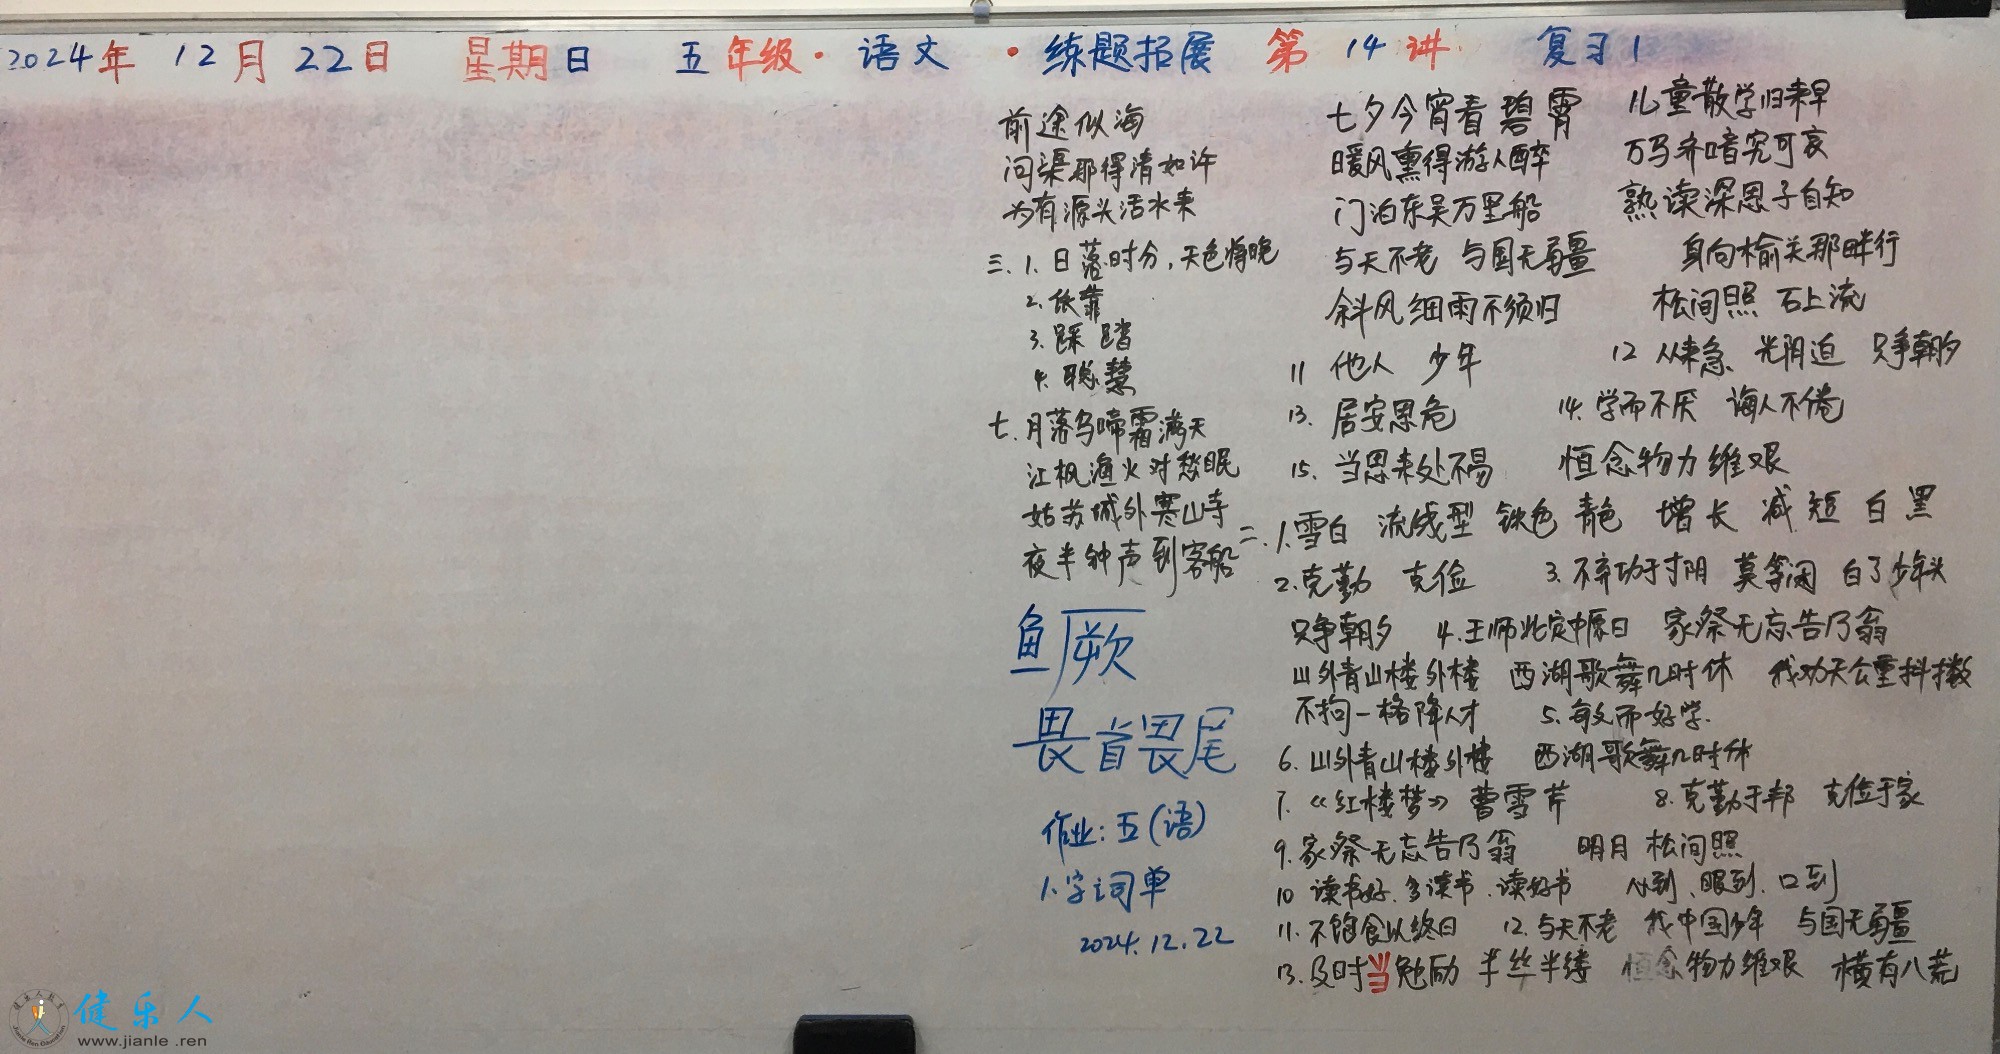 2024年 12月22日 星期日 五年级·语文 ·练题拓展 第14讲 复习1
前途似海
问渠那得清如许
为有源头活水来
三.1.日落时分,天色将晚
2.依靠
3.踩 踏
4.聪慧
七.月落乌啼霜满天
江枫渔火对愁眠
姑苏城外寒山寺
夜半钟声到客船
鱼 厥
畏首畏尾
作业:五(语)
1.字词单
2024.12.22
七夕今宵看碧霄 儿童散学归来早
暖风熏得游人醉 万马齐喑究可哀
门泊东吴万里船 熟读深思子自知
与天不老 与国无疆 身向榆关那畔行
斜风细雨不须归 松间照 石上流
11 他人 少年 12 从来急 光阴迫 只争朝夕
13.居安思危 14.学而不厌 诲人不倦
15.当思来处不易 恒念物力维艰
二.1.雪白 流线型 铁色 青色 增长 减短 白 黑
2.克勤 克俭 3.不弃功于寸阴 莫等闲 白了少年头
只争朝夕 4.王师北定中原日 家祭无忘告乃翁
山外青山楼外楼 西湖歌舞几时休 我劝天公重抖擞
不拘一格降人才 5.敏而好学.
6.山外青山楼外楼 西湖歌舞几时休
7.《红楼梦》 曹雪芹 8.克勤于邦 克俭于家
9.家祭无忘告乃翁 明月 松间照
10 读书好、多读书、读好书 心到、眼到、口到
11.不饱食以终日 12.与天不老 我中国少年 与国无疆
13.及时当勉励 半丝半缕 恒念物力维艰 横有八荒
健乐人
www.jianle.ren